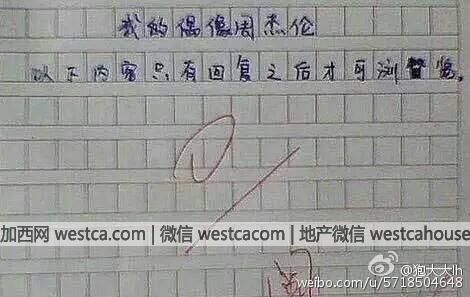 我的偶像周杰伦
以下内容只有回复之后才可浏览。
阅
加西网 westca.com | 微信 westcacom | 地产微信 westcahouse
@狍大大lh
weibo.com/u/5718504648